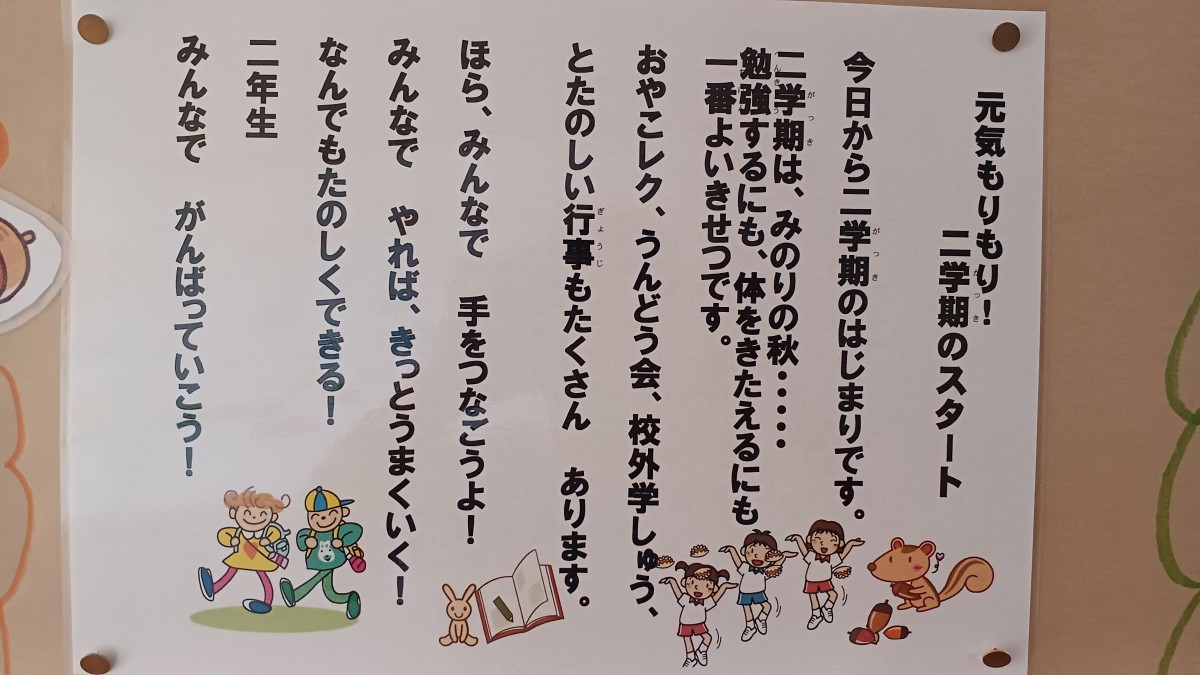 元気もりもり！
二学期のスタート
今日から二学期のはじまりです。
二学期は、みのりの秋・・・・・
勉強するにも、体をきたえるにも
一番よいきせつです。
おやこレク、うんどう会、校外学しゅう、
とたのしい行事もたくさん　あります。
ほら、みんなで　手をつなごうよ！
みんなで　やれば、きっとうまくいく！
なんでもたのしくできる！
二年生
みんなで　がんばっていこう！